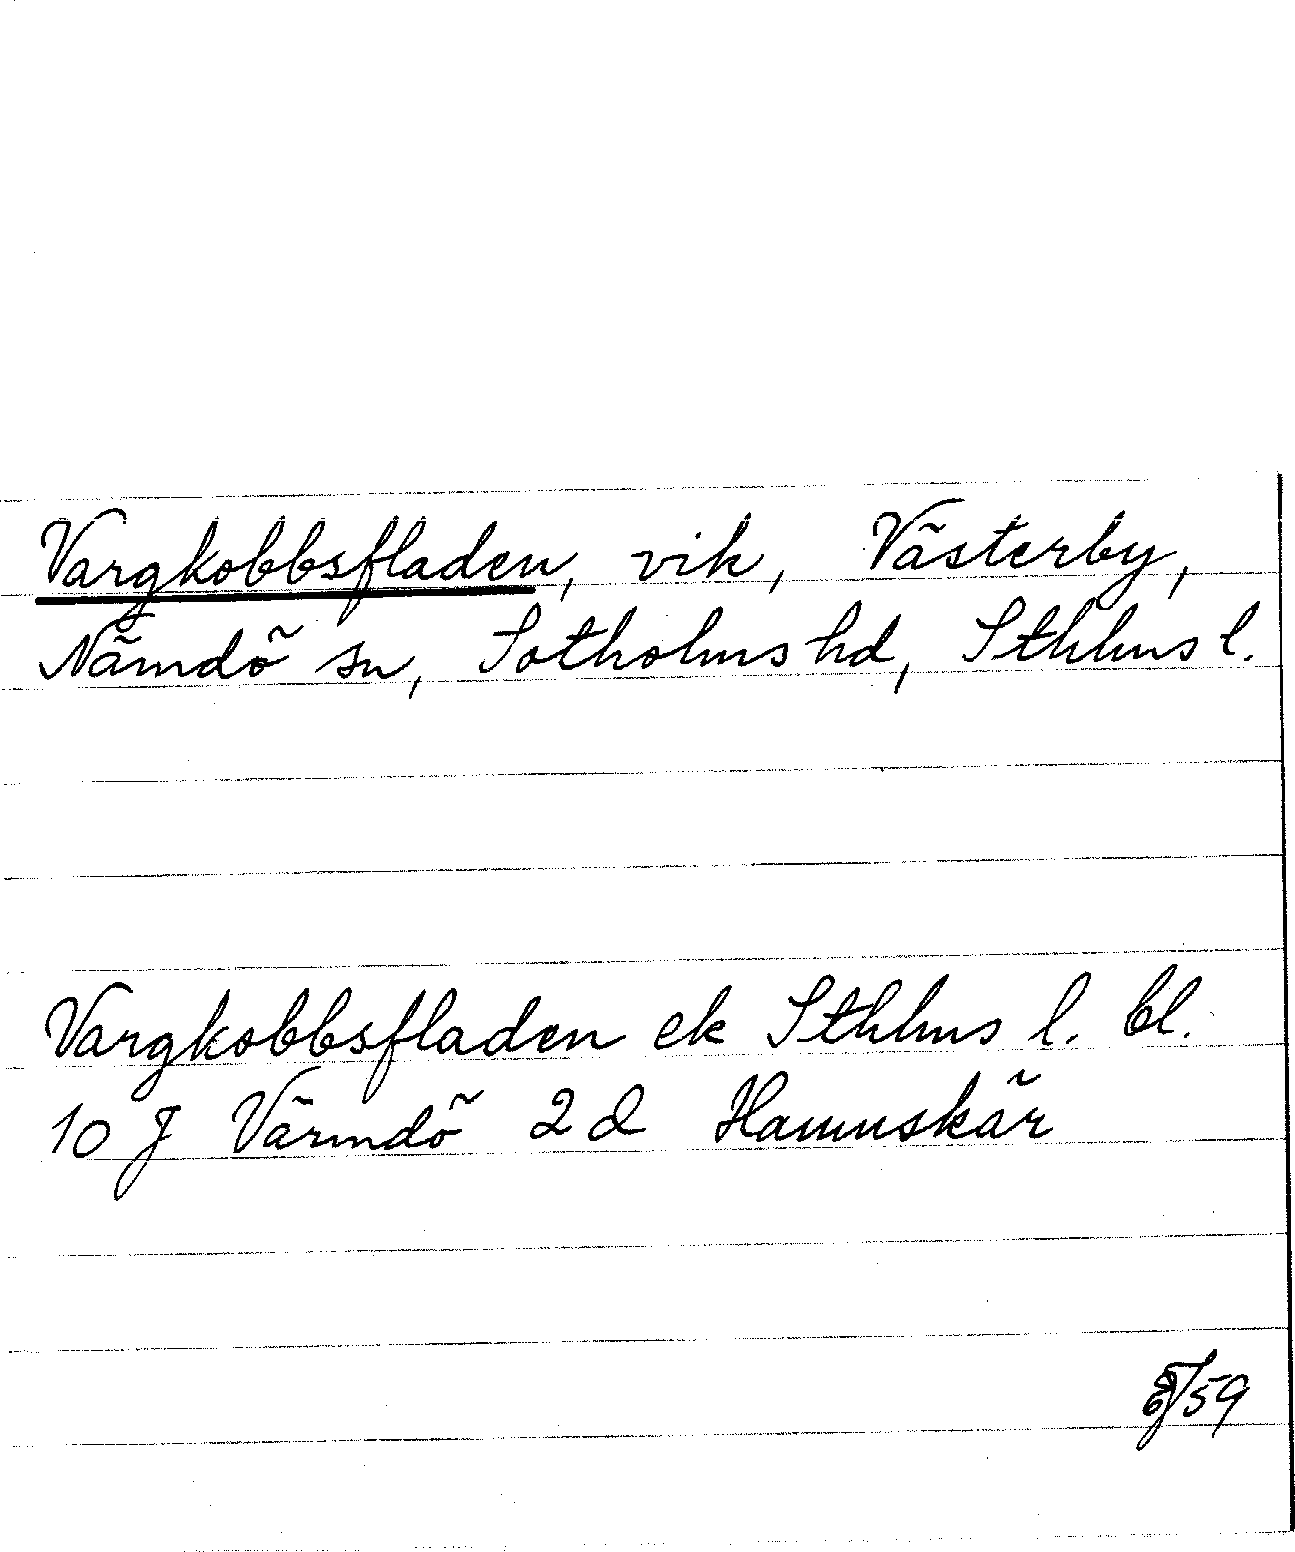 Vargkobbsfladen, vik, Västerby,
Nämdö sn, Sotholms hd, Sthlms l.
Vargkobbsfladen ek Sthlms l. bl.
10 J Värmdö 2 d Hamnskär
/59